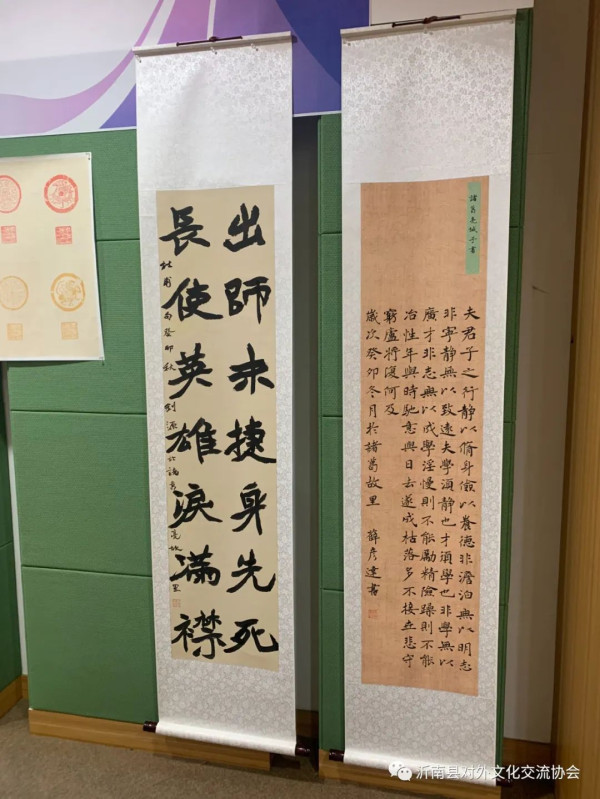 出師未捷身先死
長使英雄淚滿襟
癸卯秋
諸葛亮誡子書
夫君子之行静以脩身儉以養德非澹泊無以明志
非寧静無以致遠夫學須静也才須學也非學無以
廣才非志無以成學淫慢則不能勵精險躁則不能
冶性年與時馳意與日去遂成枯落多不接世悲守
窮廬將復何及
歲次癸卯冬月於諸葛故里 薛彦達書
沂南县对外文化交流协会